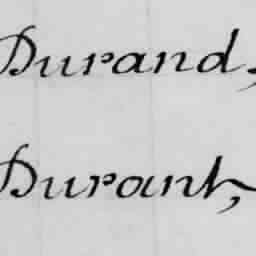 Durand,
Durant,